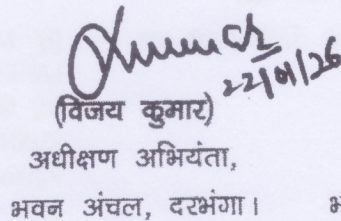 22/01/26
(विजय कुमार)
अधीक्षण अभियंता,
भवन अंचल, दरभंगा।